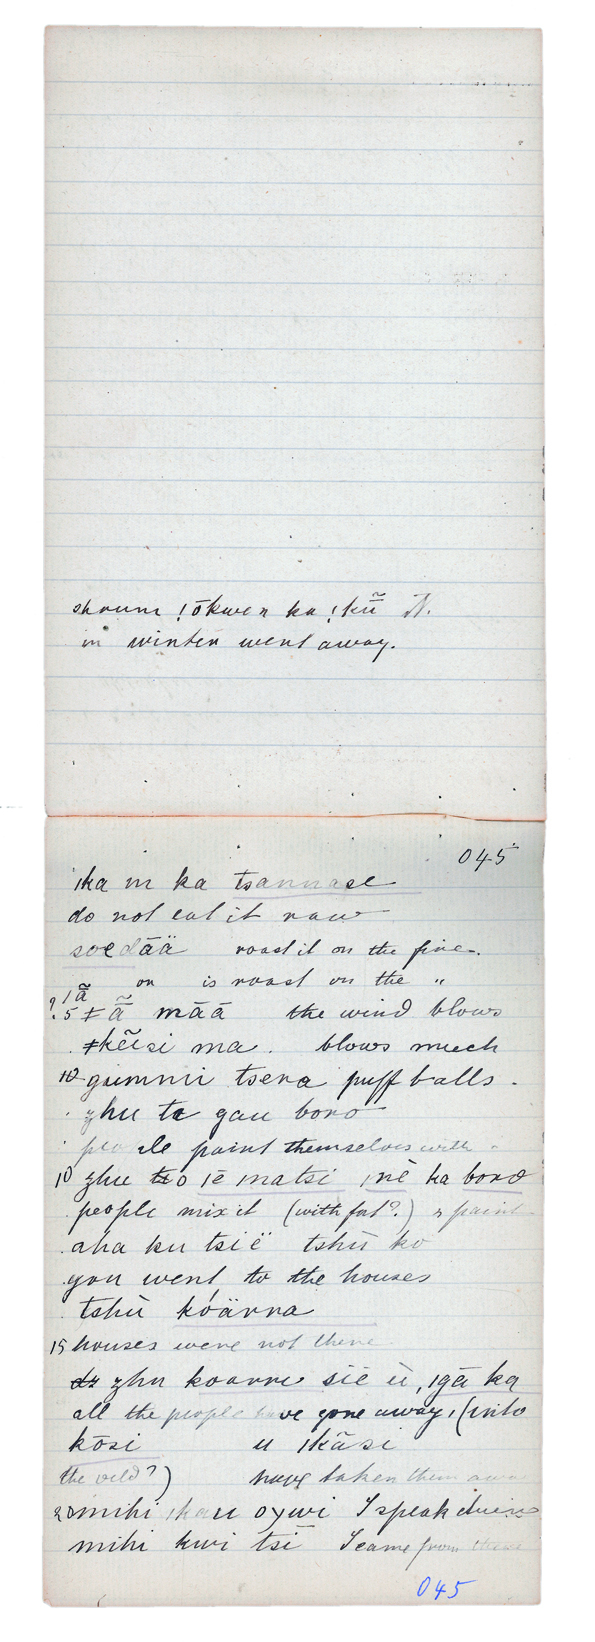 shaum !ōkwe n ka !kũ̄ N.
in winter went away.
045
ıka m ka tsannase
do not eat it raw
soedāä roast it on the fire.
or is roast on the "
? ı ã̄
5 ǂ ã̄ māā the wind blows
ǂkẽisi ma. blows much
gummii tsera puff balls.
zhu ta gau boro
people paint themselves with
10 zhu o ıē matsi ınē ka boro
people mix it (with fat?) & paint
aha ku tsië tshū ko
you went to the houses
tshù kóärra
15 houses were not there
zhu koarre sië ù, ıgā ka
all the people have gone away, (into
kōsi u ıkāsi
the veld?) have taken them away
20 mihi ıkau oywi I speak
mihi kwi tsī I came from there
045